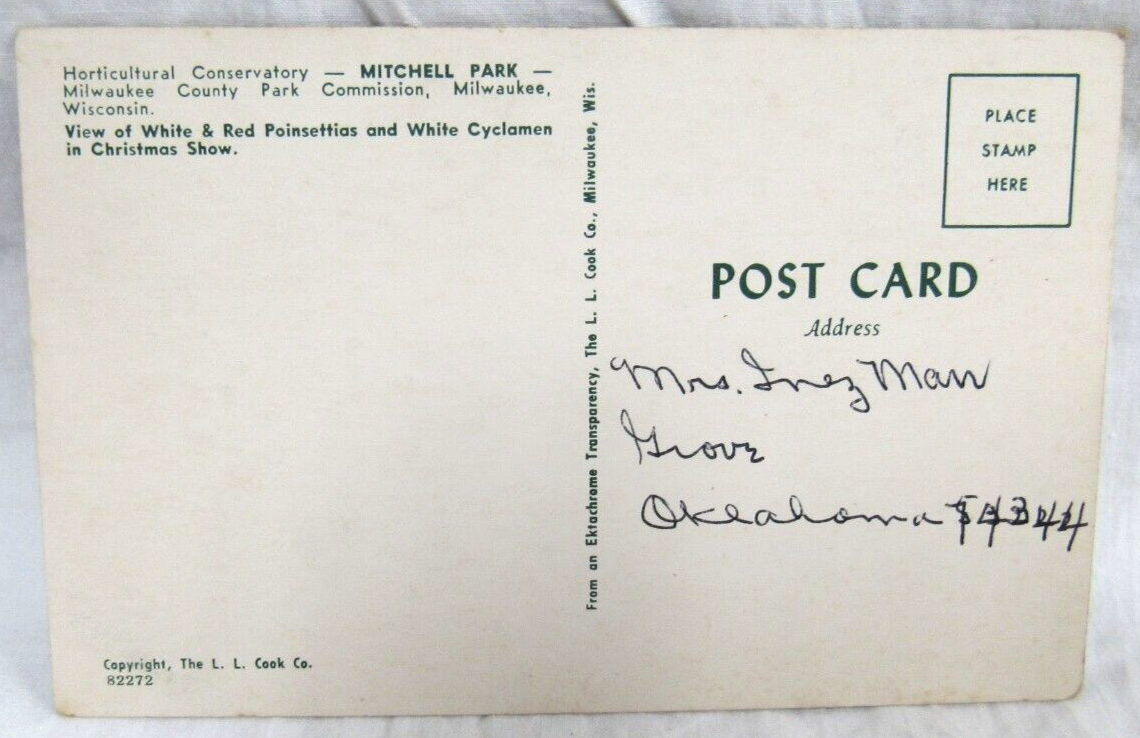 Horticultural Conservatory — MITCHELL PARK —
Milwaukee County Park Commission, Milwaukee,
Wisconsin.
View of White & Red Poinsettias and White Cyclamen
in Christmas Show.
From an Ektachrome Transparency, The L. L. Cook Co., Milwaukee, Wis.
PLACE
STAMP
HERE
POST CARD
Address
Mrs. Inez Marr
Grove
Oklahoma
Copyright, The L. L. Cook Co.
82272